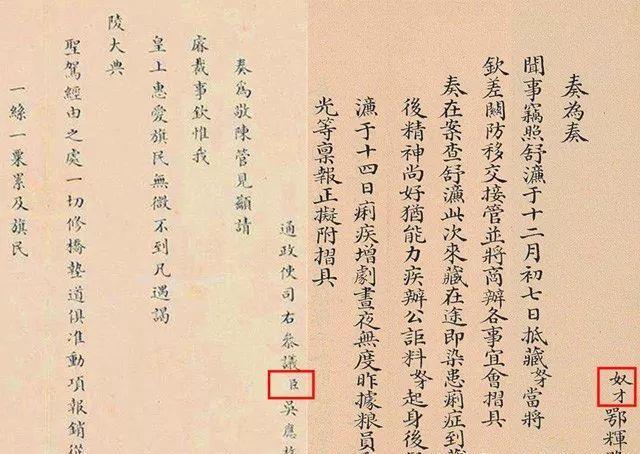 奴才鄂輝
奏為奏
聞事竊照舒濂于十二月初七日抵藏奴才當將
欽差關防移交接管並將商辦各事宜會摺具
奏在案查舒濂此次來藏在途即染患痢症到
後精神尚好猶能力疾辦公詎料奴才起身後
濂于十四日痢疾增劇晝夜無度昨據糧員
光等稟報正擬附摺具
通政使司右參議臣吳應
奏為敬陳管見顒請
睿裁事欽惟我
皇上惠愛旗民無微不到凡遇謁
陵大典
聖駕經由之處一切修橋墊道俱准動項報銷從
一絲一粟累及旗民